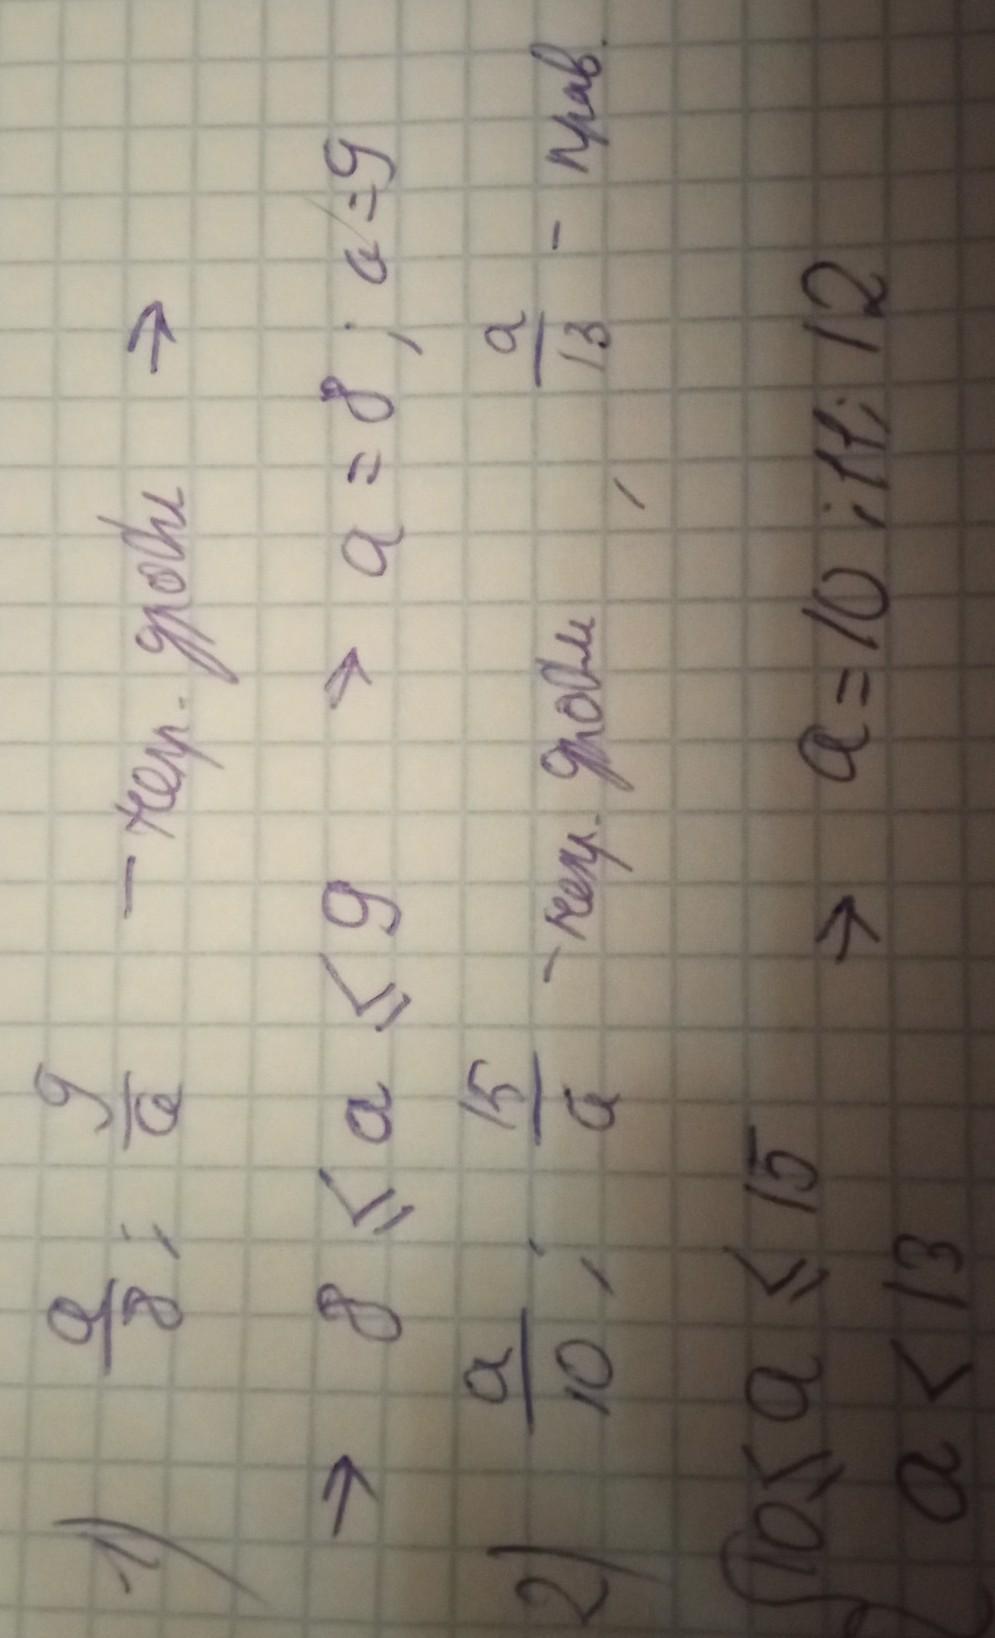 1) a/8 ; 9/a - непр. дроби →
→ 8 ≤ a ≤ 9 → a = 8 ; a = 9
2) a/10 ; 15/a - непр. дроби , a/13 - прав.
{ 10 ≤ a ≤ 15 → a = 10 ; 11 ; 12
a < 13